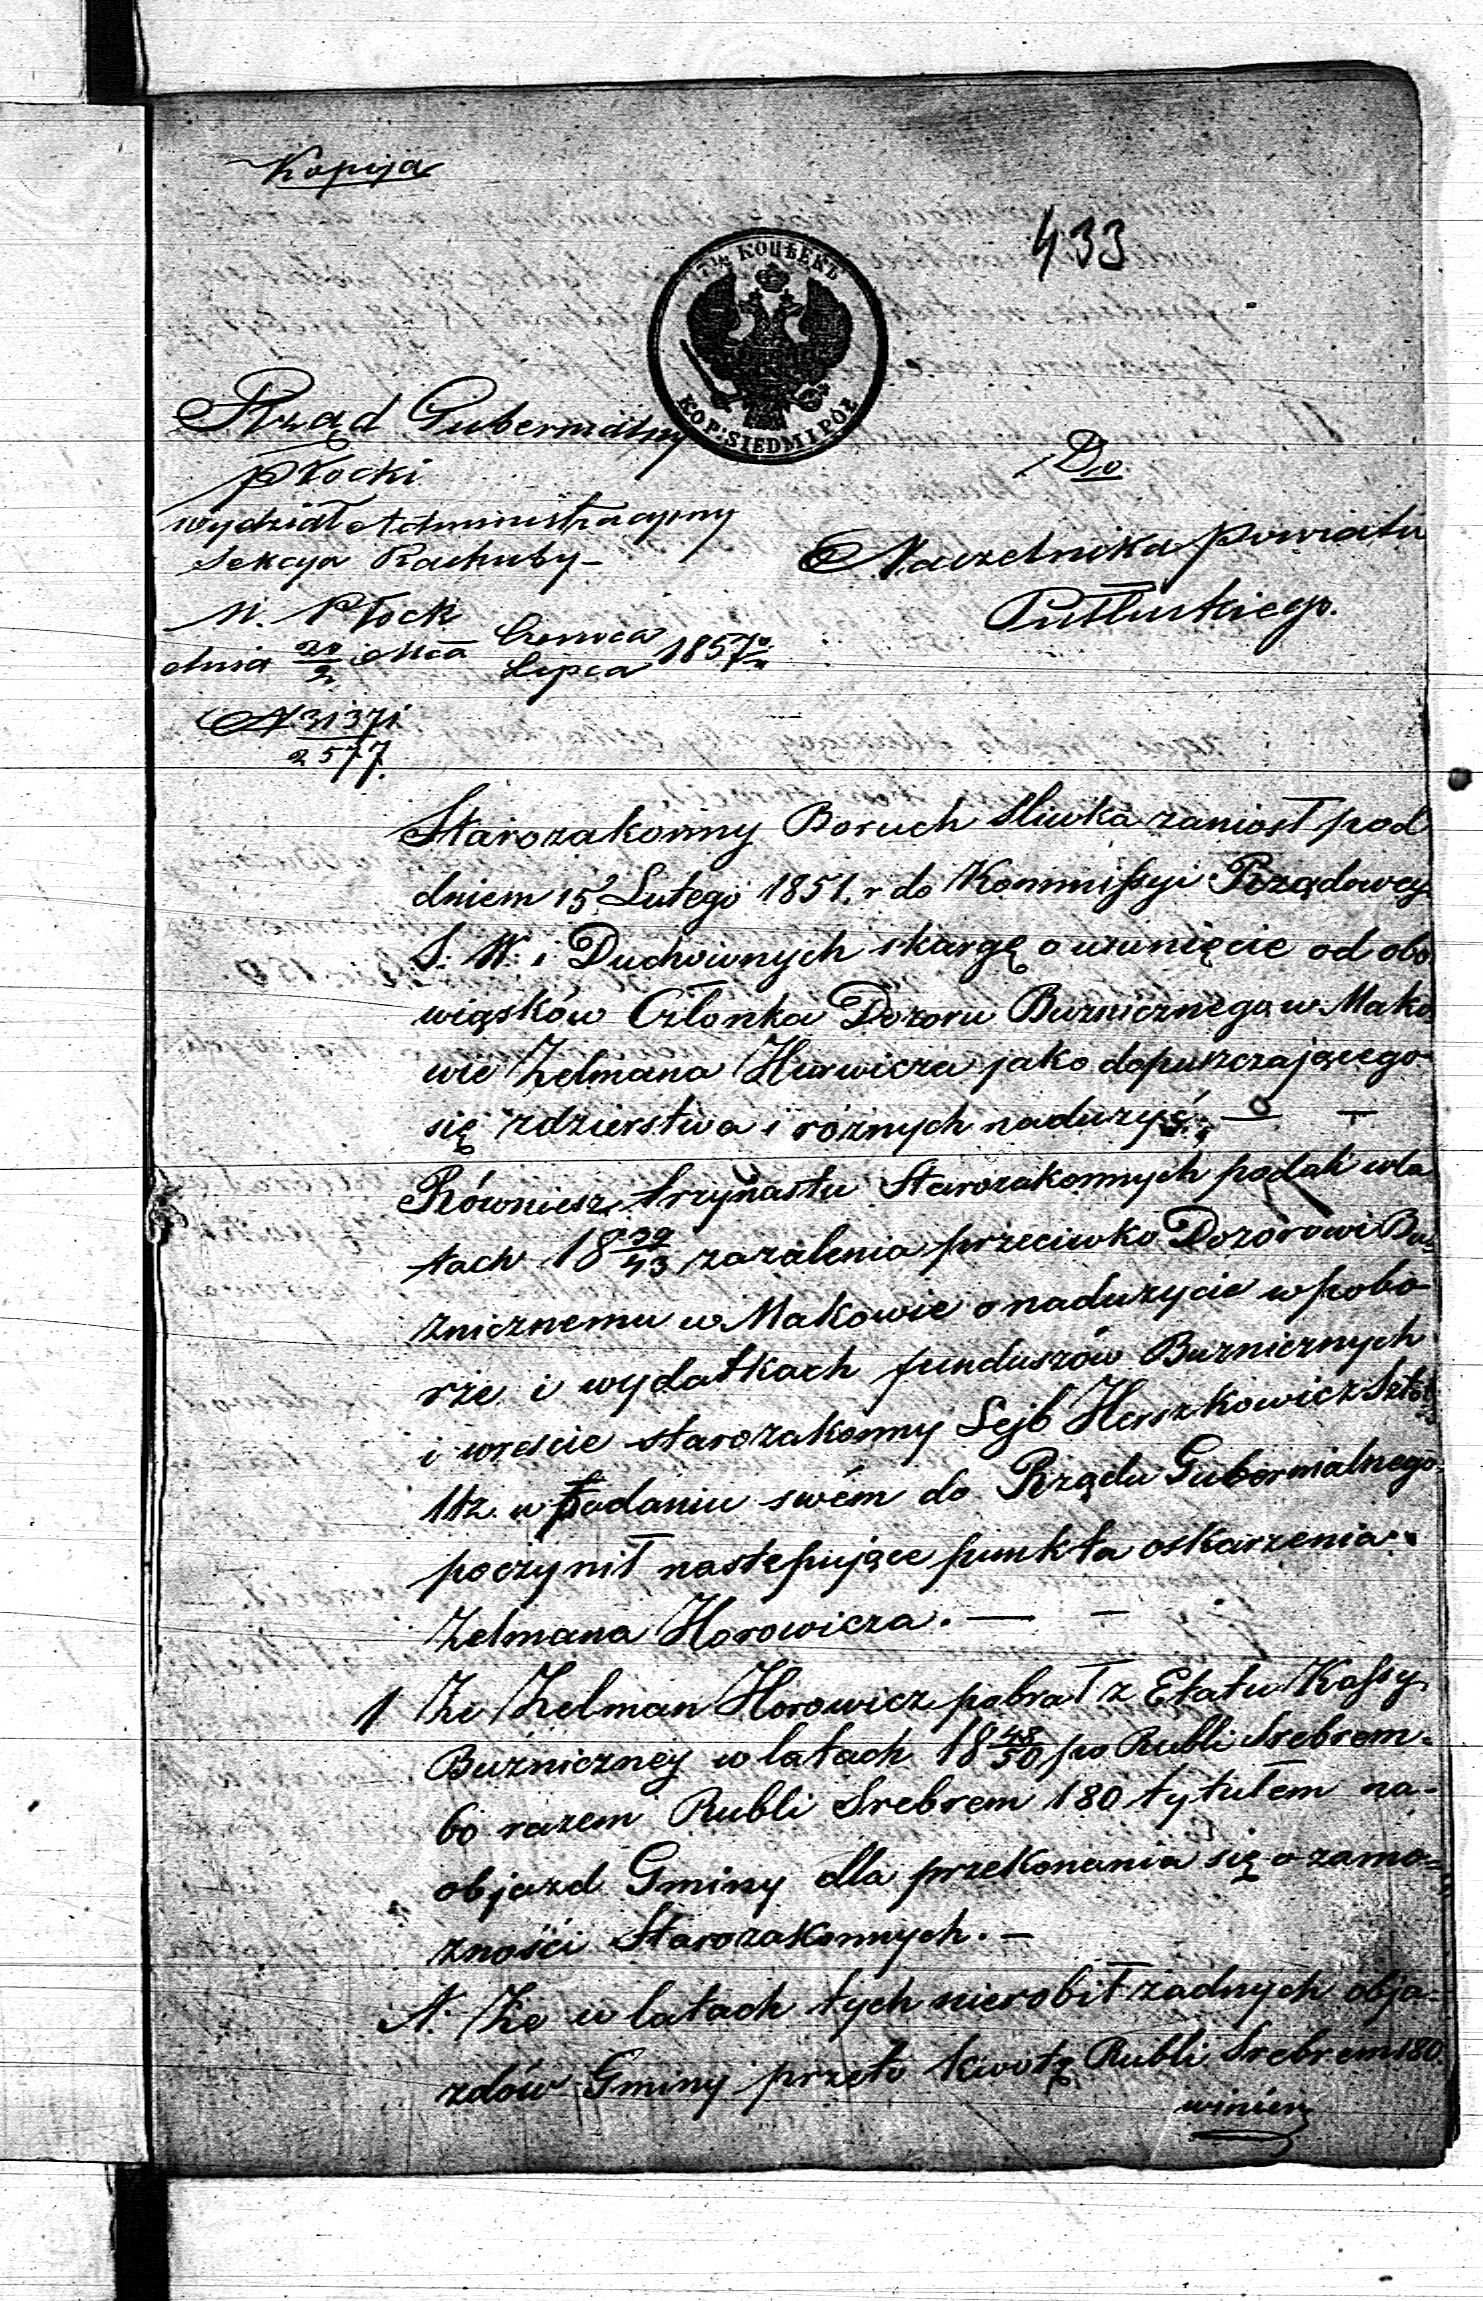 Kopija
433
7½ КОПѢЕКЪ
KOP: SIEDM I PÓŁ
Rząd Gubernialny
Płocki
Wydział Administracyiny
Sekcya Rachuby -
M. Płock
dnia 20/2 Mca Czerwca/Lipca 1857 r
N 31371/2577.
Do
Naczelnika Powiatu
Pułtuskiego.
Starozakonny Boruch Sliwka zaniosł pod
dniem 15 Lutego 1851. r do Kommissyi Rządowey
S. W. i Duchownych skargę o usunięcie od obo
wiąsków Członka Dozoru Buzniczego w Mako
wie Zelmana Hurwicza jako dopuszczającego
się zdzierstwa i róznych naduzyć. — —
Równiesz trzynastu Starozakonnych podali w la
tach 18 39/43 zazalenia przeciwko Dozorowi Bu-
znicznemu w Makowie o naduzycie w pobo-
rze i wydatkach funduszów Buznicznych
i wreście starozakonny Lejb Herszkowicz
w Podaniu swém do Rządu Gubernialnego
poczynił następujące punkta oskarzenia
Zelmana Horowicza. — —
1 Ze Zelman Horowicz pobrał z Etatu Kassy
Buzniczney w latach 18 48/50 po Rubli Srebrem-
60 razem Rubli Srebrem 180 tytułem na-
objazd Gminy dla przekonania się o zamo-
zności Starozakonnych. —
A. Ze w latach tych nierobił zadnych obja-
zdów Gminy przeto kwotę Rubli Srebrem 180.
winien